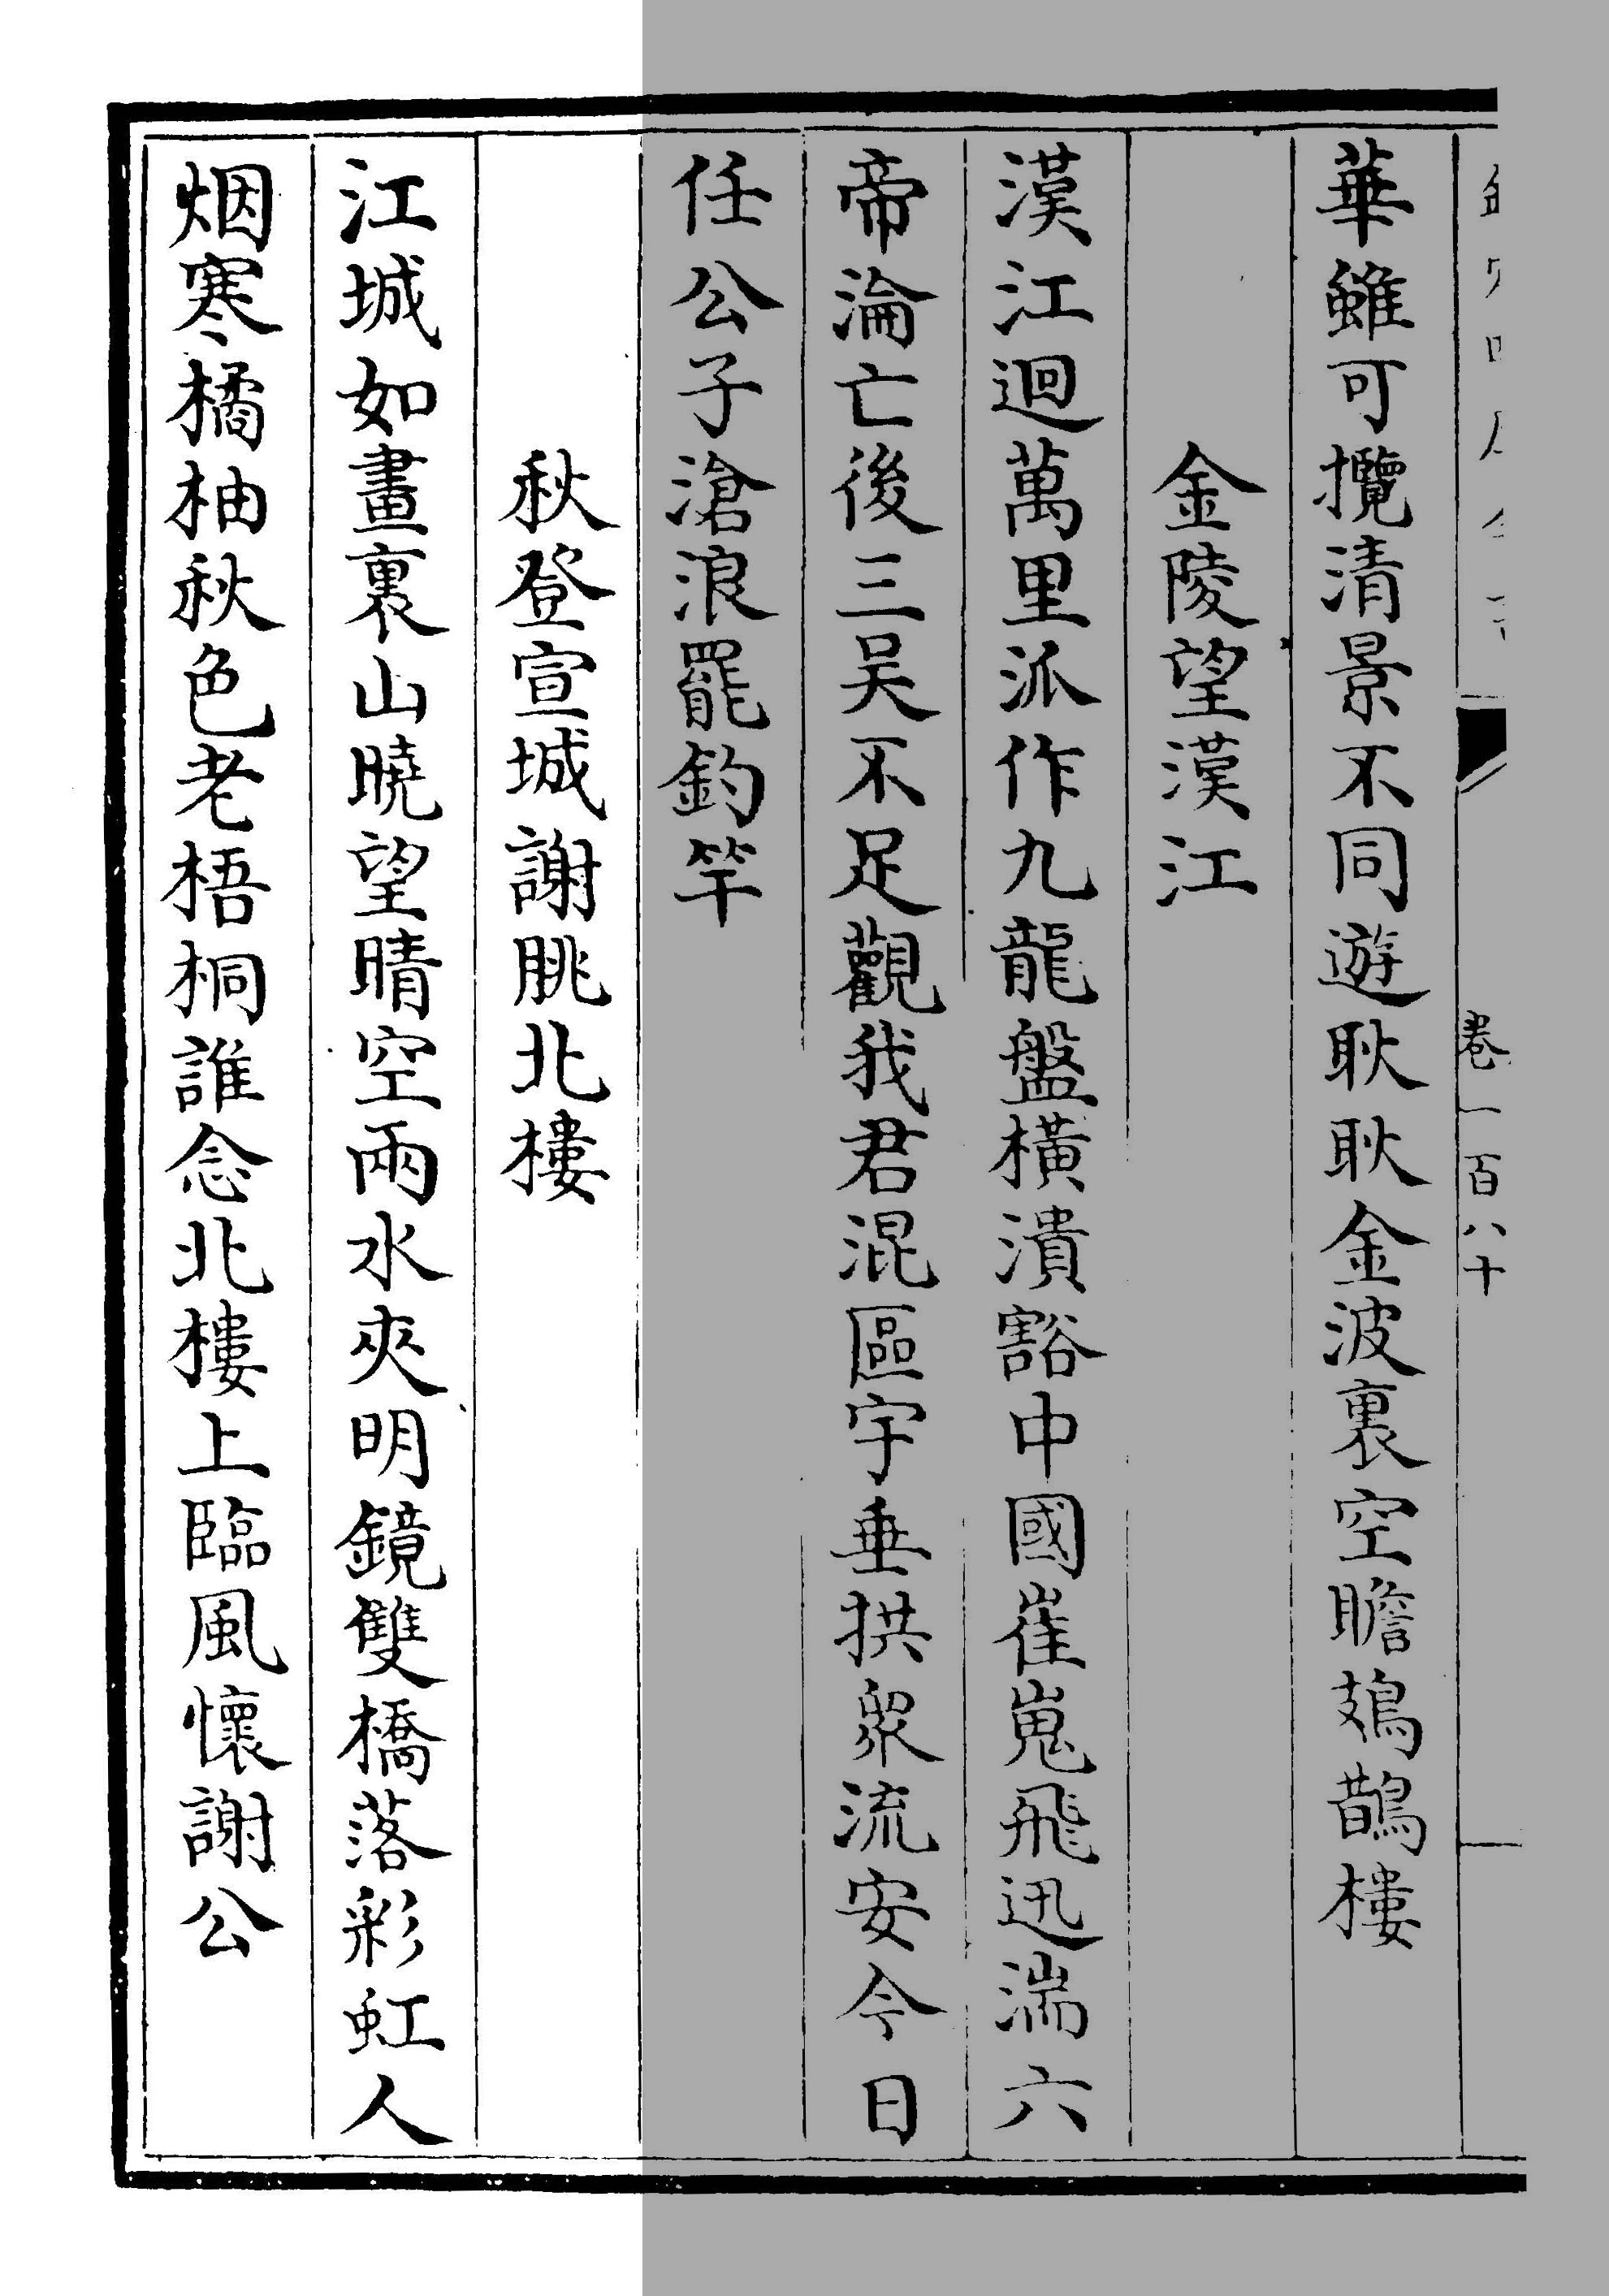 卷一百八十
華雖可攬清景不同遊耿耿金波裏空瞻鳷鵲樓
金陵望漢江
漢江迴萬里派作九龍盤橫潰豁中國崔嵬飛迅湍六
帝淪亡後三吳不足觀我君混區宇垂拱衆流安今日
任公子滄浪罷釣竿
秋登宣城謝朓北樓
江城如畫裏山曉望晴空兩水夾明鏡雙橋落彩虹人
烟寒橘柚秋色老梧桐誰念北樓上臨風懷謝公